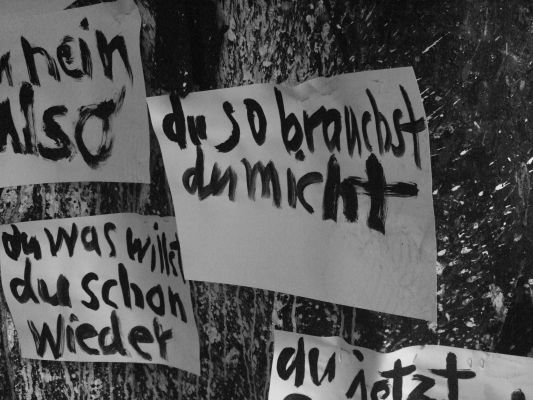 u nein
also
du so brauchst
du micht
du was willst
du schon
wieder
du jetzt